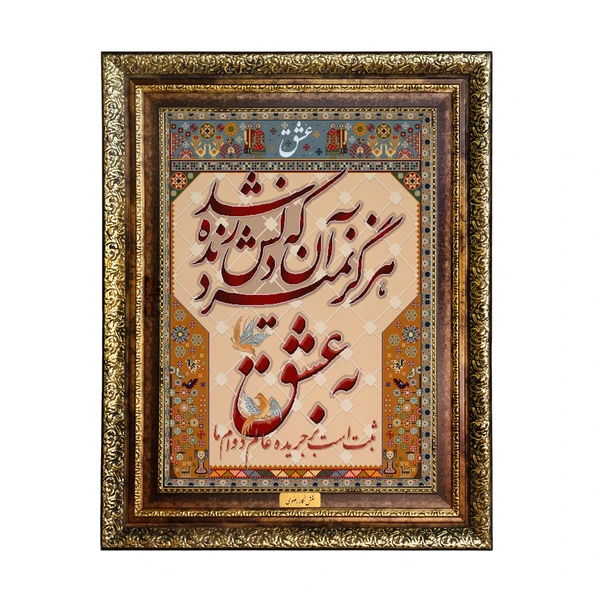 عشق
هرگز نمیرد آن که دلش زنده شد
به عشق
ثبت است بر جریده عالم دوام ما